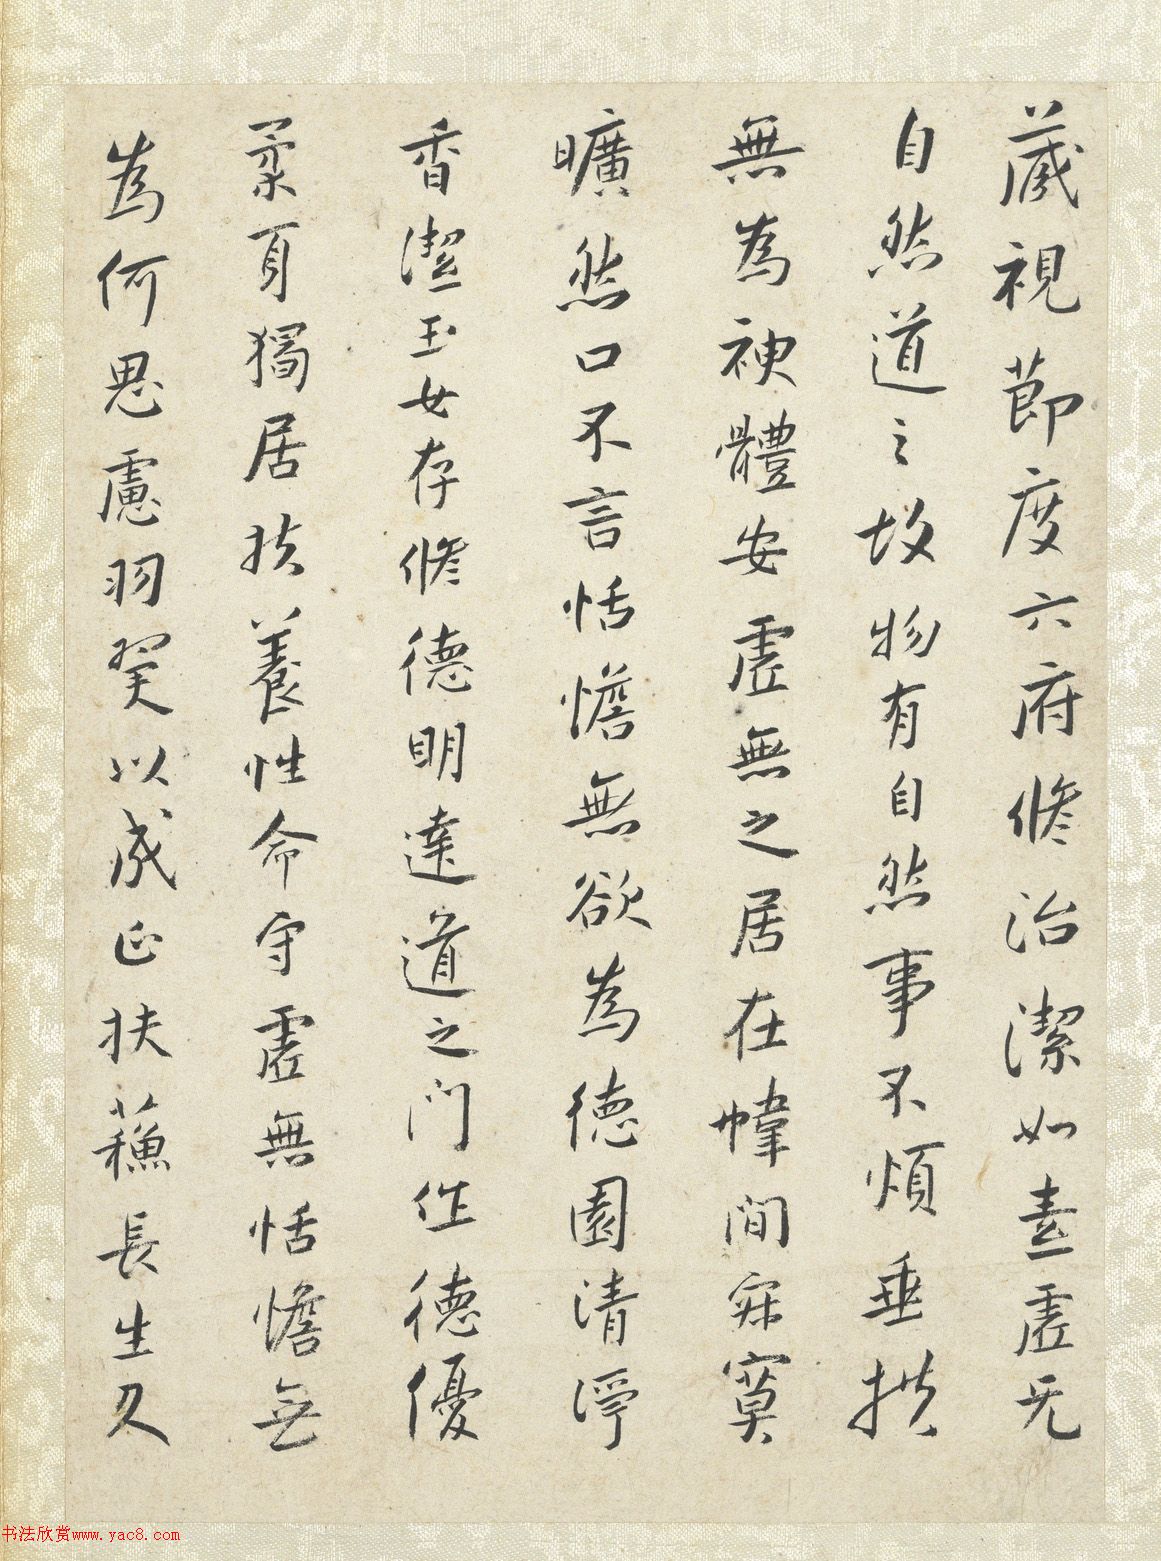 藏視節度六府脩治潔如素虛无
自然道之故物有自然事不煩垂拱
無為神體安虛無之居在幃間寂寞
曠然口不言恬憺無欲為德園清淨
香潔玉女存脩德明達道之門作德優
柔身獨居扶養性命守虛無恬憺無
為何思慮羽翼以成正扶蘓長生久
书法欣赏www.yac8.com